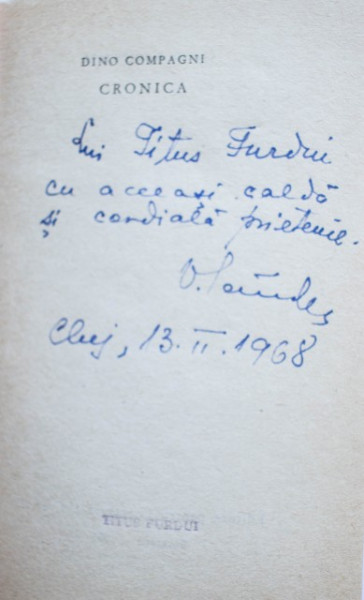 DINO COMPAGNI
CRONICA
Lui Titus Furdui
cu aceeași caldă
și cordială prietenie.
Cluj, 13.II.1968
TITUS FURDUI